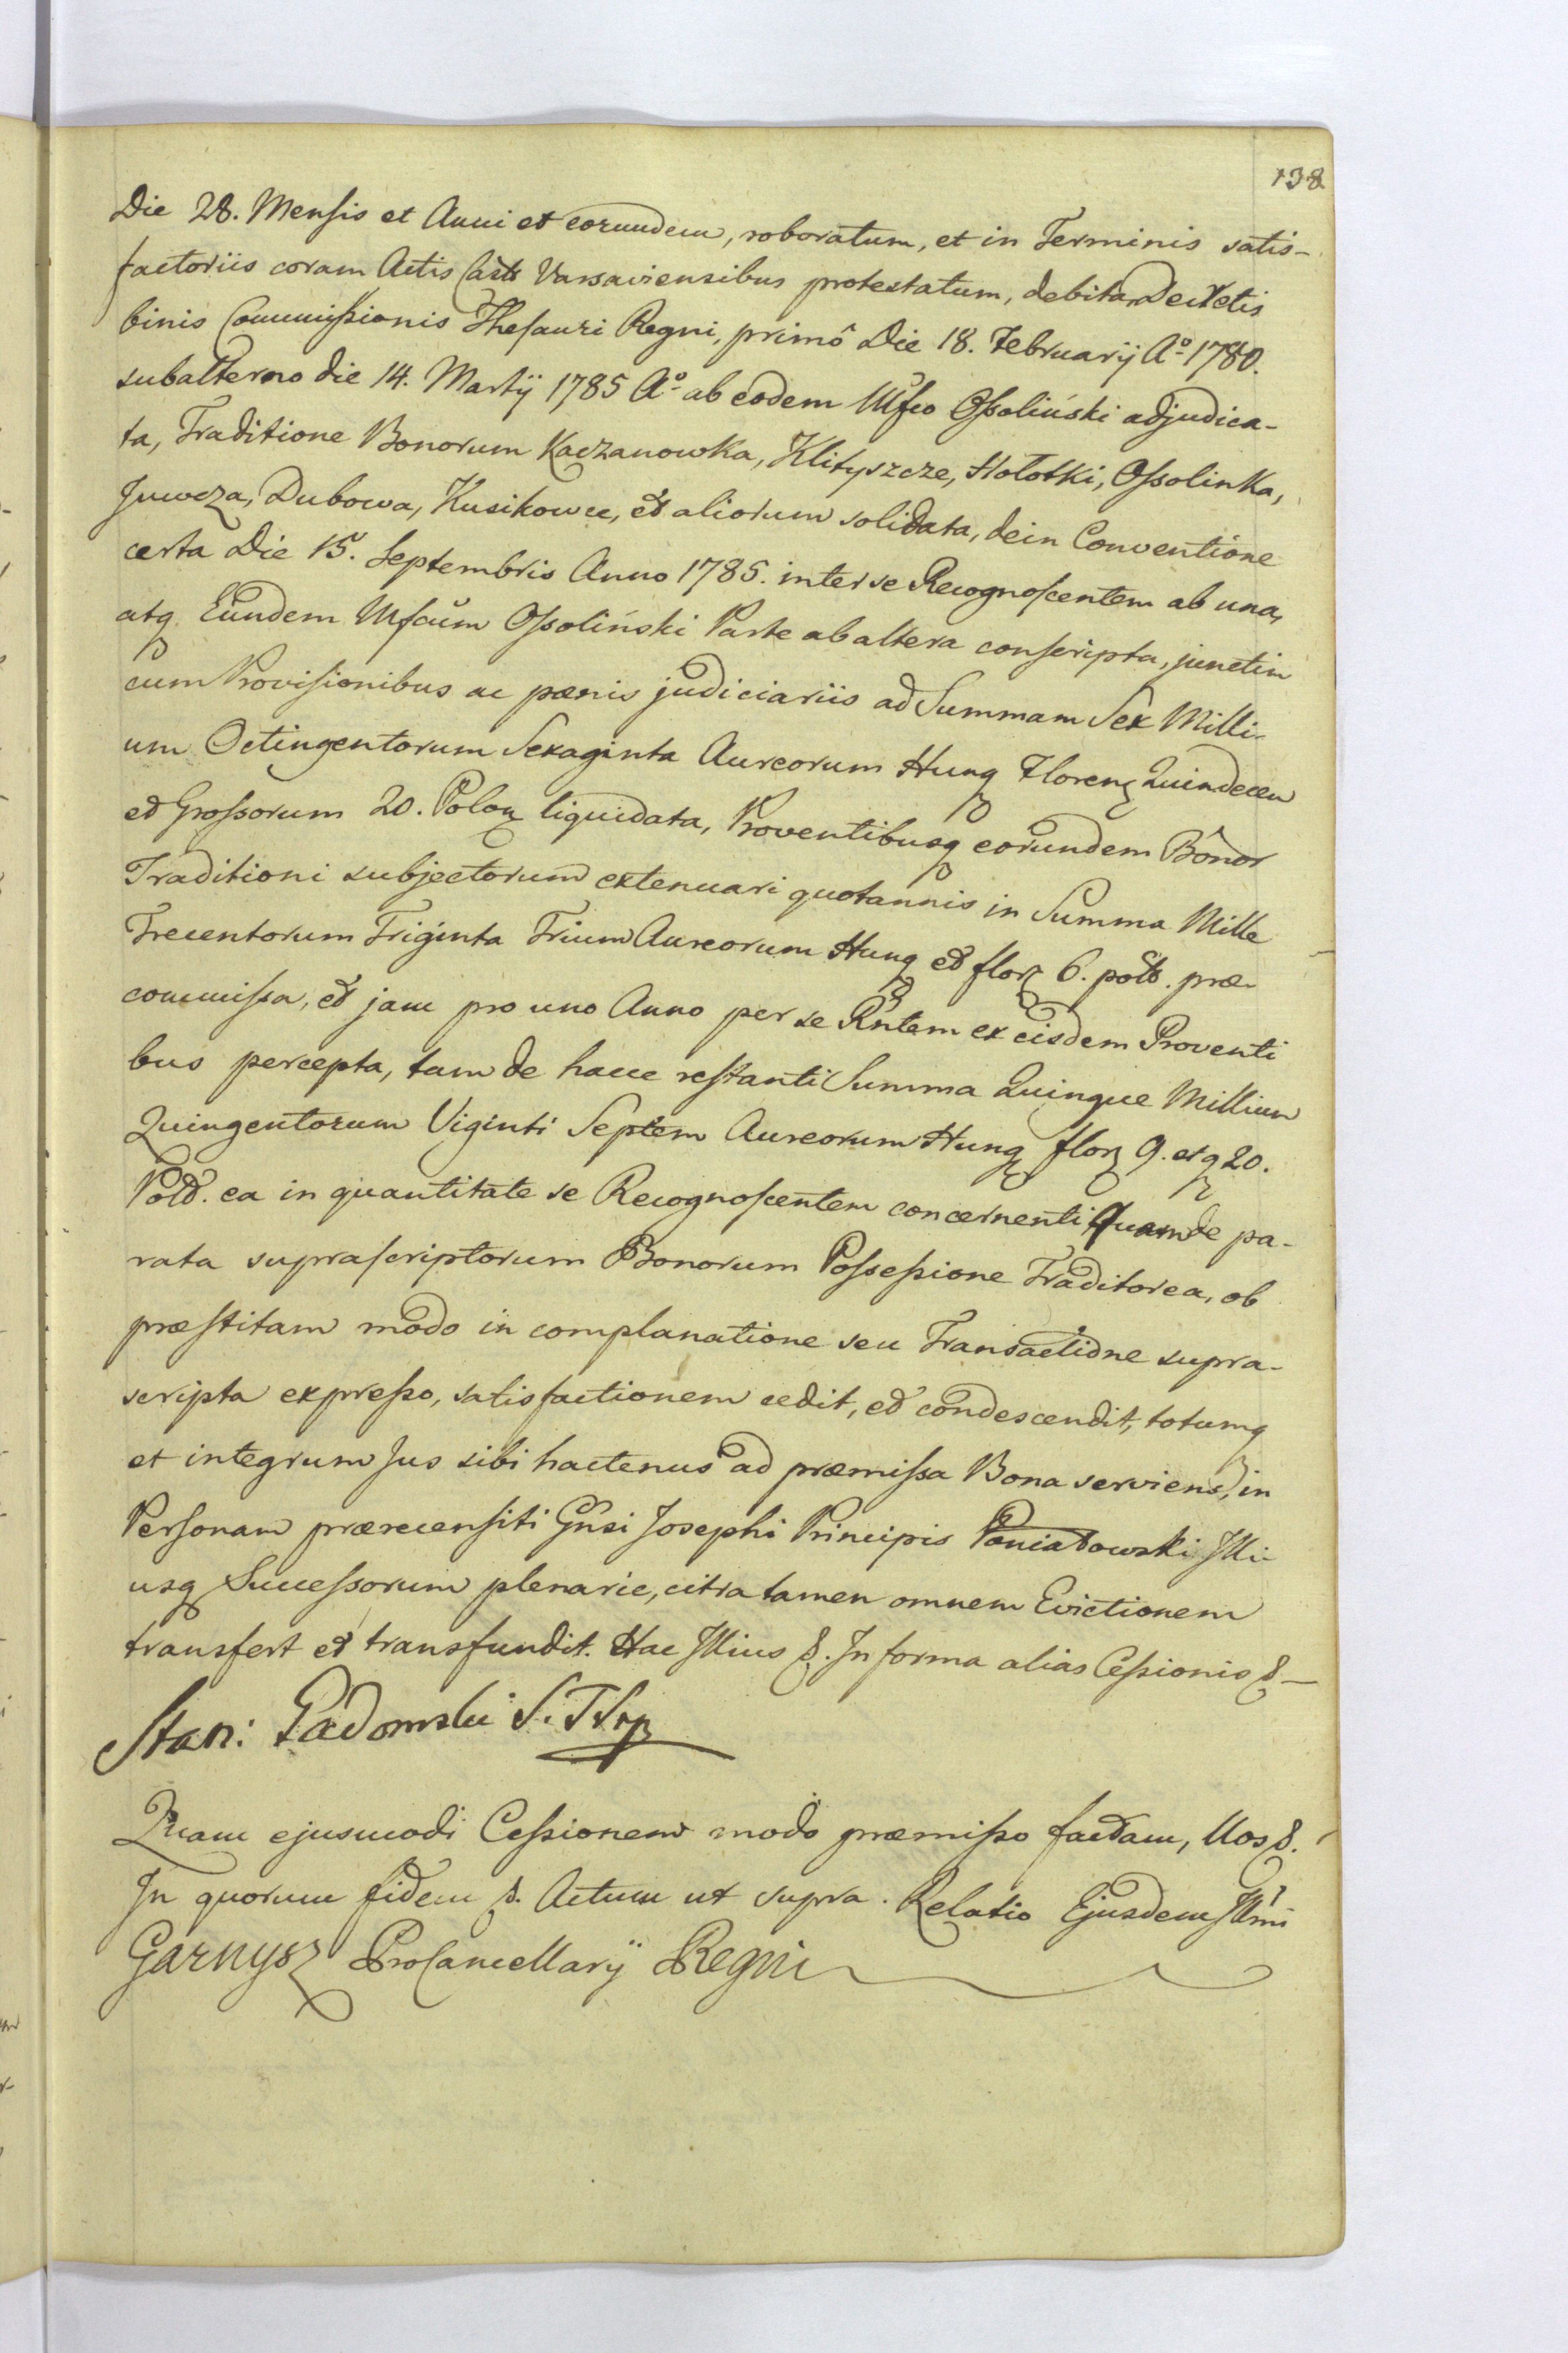 138
Die 28. Mensis et Anni et eorundem, roboratum, et in Terminis satis-
factoriis coram Actis Castr Varsaviensibus protestatum, debita, Decretis
binis Commissionis Thesauri Regni, primô Die 18. Februarij Aº 1780.
subalterno die 14. Martij 1785 Aº ab eodem Mfco Ossoliński adjudica-
ta, Traditione Bonorum Kaczanowka, Klityszcze, Hołotki, Ossolinka,
Juwcza, Dubowa, Kusikowce, et aliorum solidata, dein Conventione
certa Die 15. Septembris Anno 1785. inter se Recognoscentem ab una,
atq Eundem Mfcum Ossoliński Parte ab altera conscripta, junctim
cum Provisionibus ac pænis judiciariis ad Summam Sex Milli-
um Octingentorum Sexaginta Aureorum Hung Floren Quindecem
et Grossorum 20. Polon liquidata, Proventibusq eorundem Bonor
Traditioni subjectorum extenuari quotannis in Summa Mille
Trecentorum Triginta Trium Aureorum Hung et flor 6. pold. præ-
commissa, et jam pro uno Anno per se Rntem ex eisdem Proventi
bus percepta, tam de hacce restanti Summa Quinque Millium
Quingentorum Viginti Septem Aureorum Hung flor 9. et g 20.
Pold. ea in quantitate se Recognoscentem concernenti Quam de pa-
rata suprascriptorum Bonorum Possessione Traditorea, ob
præstitam modo in complanatione seu Transactione supra-
scripta expresso, satisfactionem cedit, et condescendit, totumq
et integrum Jus sibi hactenus ad præmissa Bona serviens, in
Personam præcensiti Gnsi Josephi Principis Poniatowski Illi-
usq Successorum plenarie, citra tamen omnem Evictionem
transfert et transfundit. Hac Illius &. In forma alias Cessionis &
Stan: Gadomski
Quam ejusmodi Cessionem modo præmisso factam, Nos &.
In quorum fidem &. Actum ut supra. Relatio Ejusdem Illmi
Garnysz ProCancellarij Regni